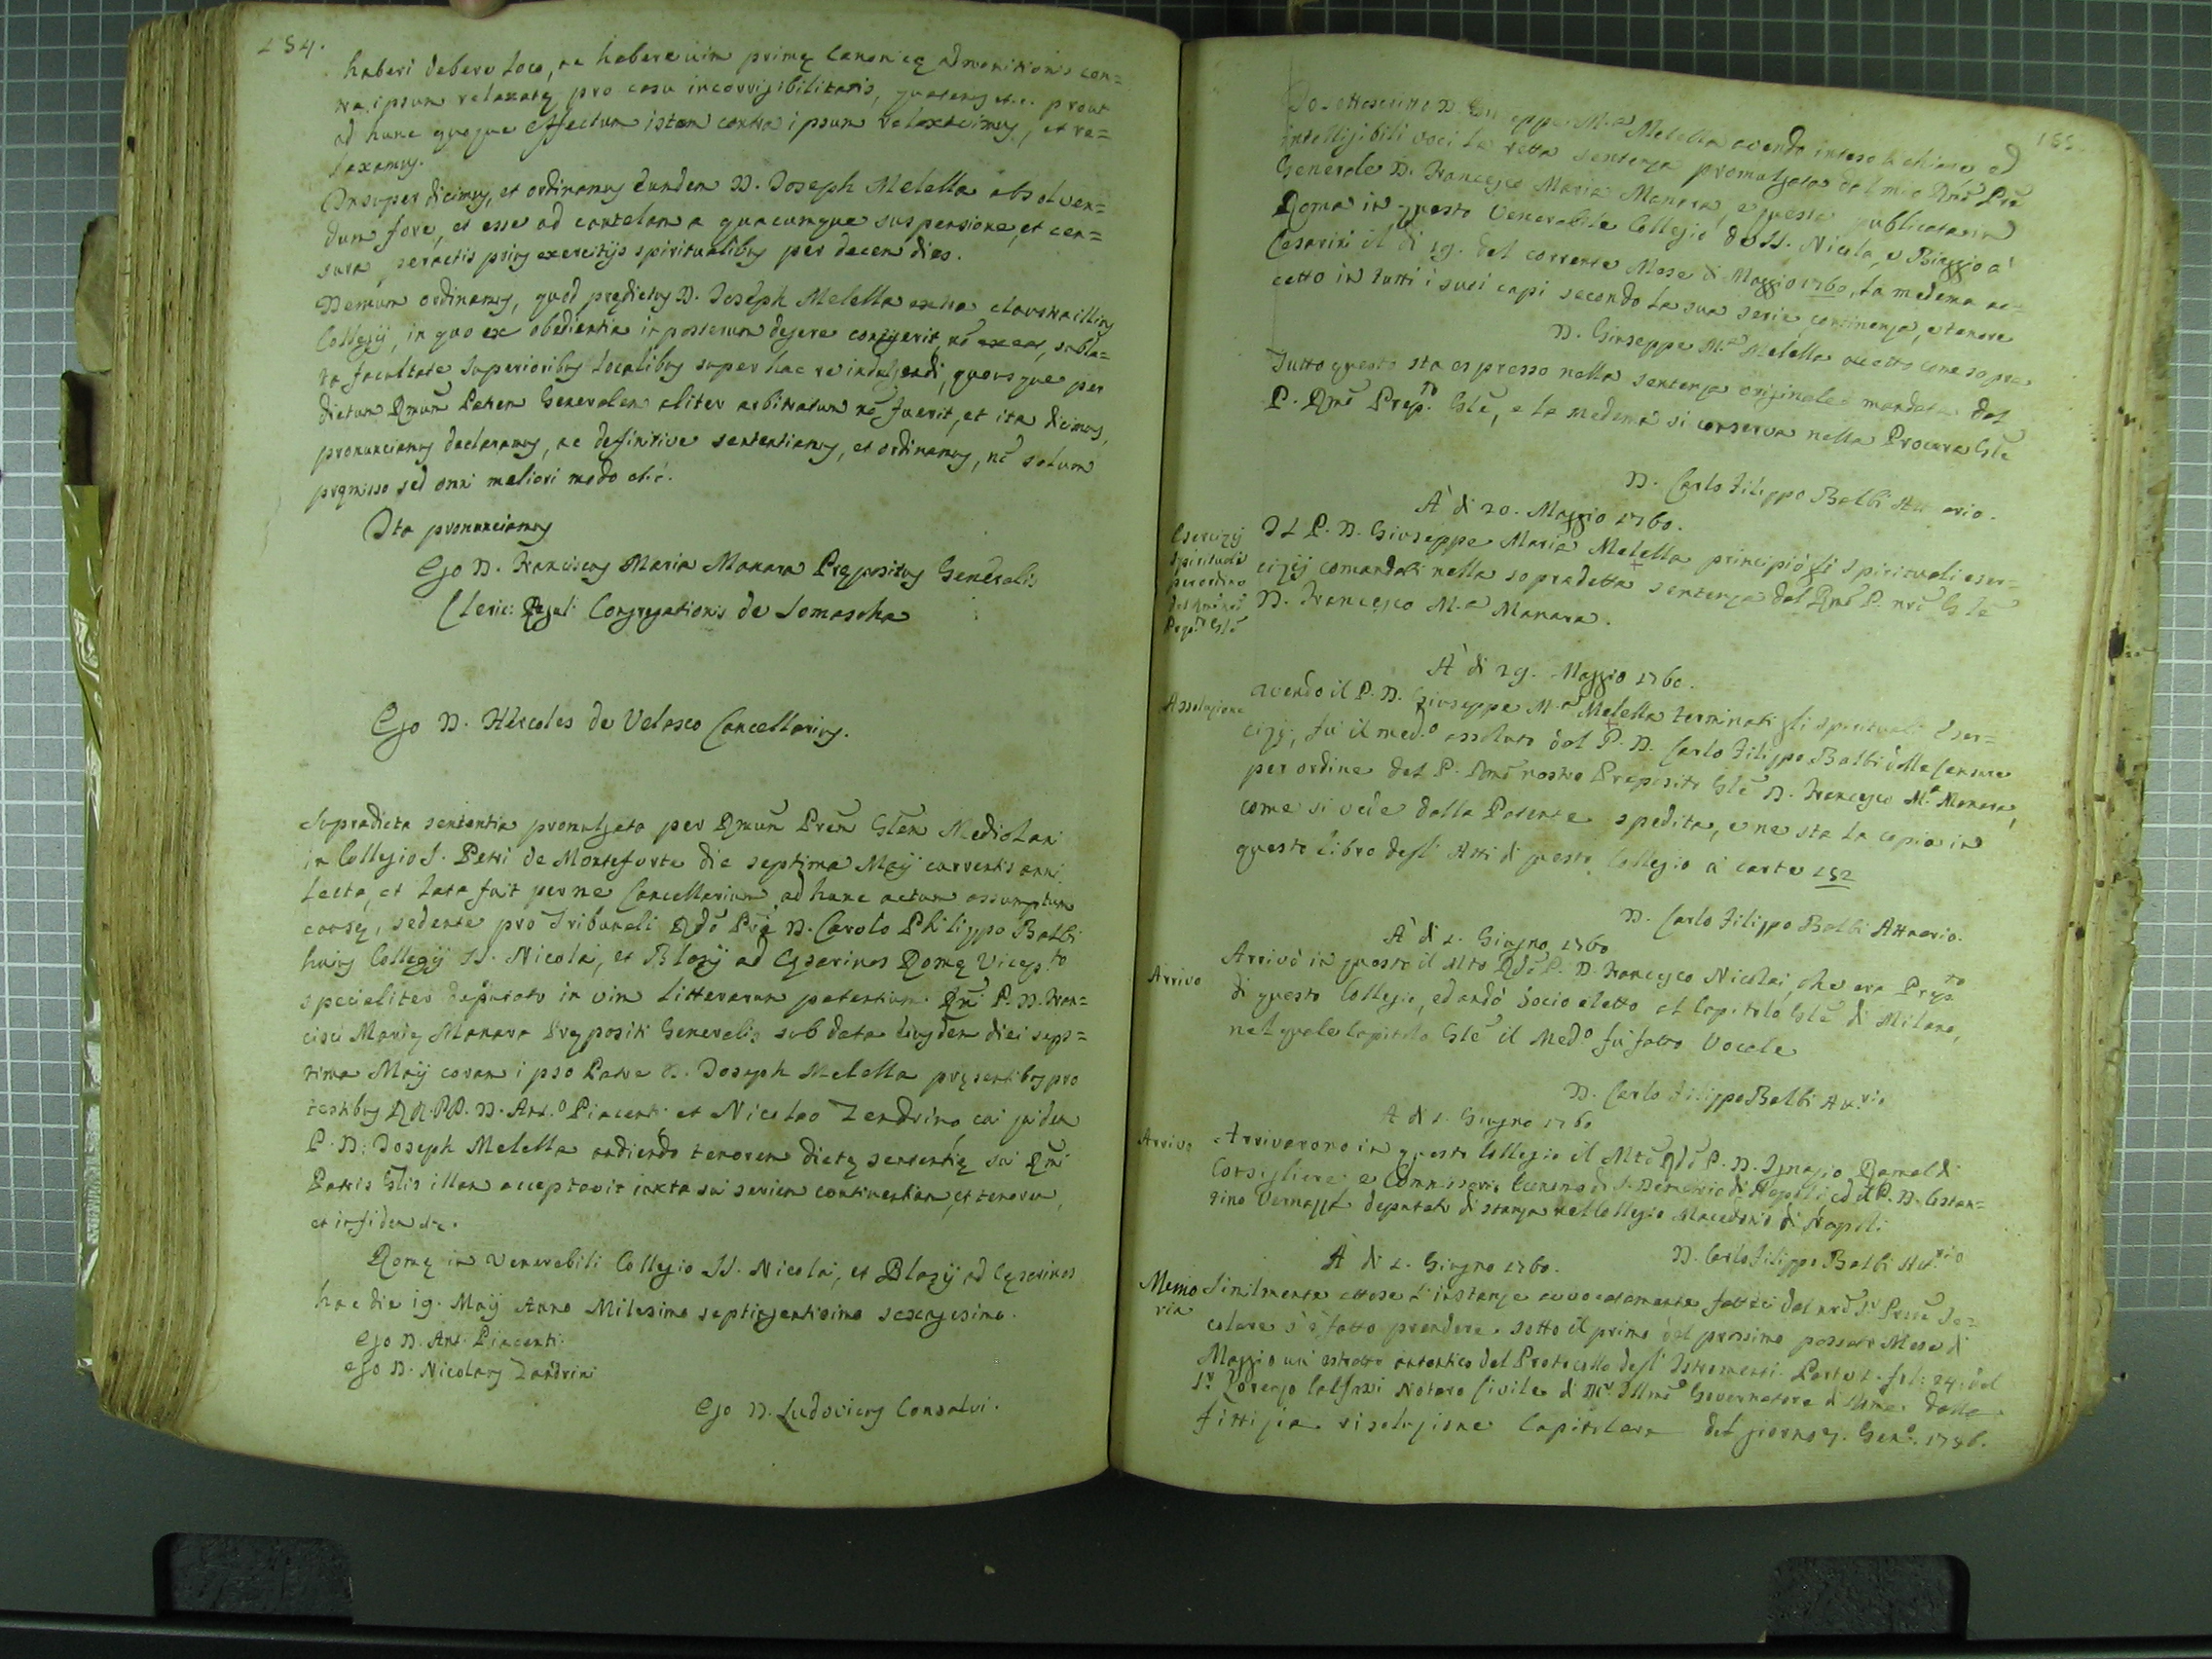 154.
haberi debere loco, ac habere vim primę Canonicę admonitionis con=
tra ipsum relaxatę pro casu incorrigibilitatis, quatenus etc. prout
ad hunc quoque effectum istam contra ipsum relaxavimus, et re=
laxamus.
Insuper dicimus, et ordinamus eundem D. Joseph Melella absolven=
dum fore, et esse ad cautelam a quacumque suspensione, et cen=
sura, peractis prius exercitijs spiritualibus per decem dies.
Demum ordinamus, quod prędictus D. Joseph Melella extra claustra illius
Collegij, in quo ex obedientia in posterum degere contigerit, nō exeat, subla=
ta facultate Superioribus localibus super hac re indulgendi, quousque per
dictum Rmum Patrem Generalem aliter arbitratum nō fuerit, et ita dicimus,
pronunciamus declaramus, ac definitive sententiamus, et ordinamus, nō solum
pręmisso sed omni meliori modo etc.
Ita pronunciamus
Ego D. Franciscus Maria Manara Prępositus Generalis
Cleric: Regul: Congregationis de Somascha
Ego D. Hercoles de Velasco Cancellarius.
Supradicta sententia promulgata per Rmum Prem Glem Mediolani
in Collegio S. Petri de Monteforte die septima Maij currentis anni
lecta, et lata fuit per me Cancellarium ad hunc actum assumptum
causę, sedente pro Tribunali Rdo Prē D. Carolo Philippo Balbi
huius Collegij SS. Nicolai, et Blasij ad Cęsarinos Romę Vicepto
specialiter deputato in vim litterarum patentium Rmi P. D. Fran=
cisci Marię Manara Prępositi Generalis sub data eiusdem diei sep=
tima Maij coram ipso Patre D. Joseph Melella pręsentibus pro
testibus RR. PP. D. Ant.o Piacenti et Nicolao Zendrino cui quidem
P. D. Joseph Melella audiendo tenorem dictę sententię sui Rmi
Patris Glis illam acceptavit iuxta sui seriem continentiam, et tenorem,
et in fidem etc.
Romę in Venerabili Collegio SS. Nicolai, et Blasij ad Cęsarinos
hac die 19. Maij Anno Milesimo septingentisimo sexagesimo.
Ego D. Ant. Piacenti.
Ego D. Nicolaus Zandrini
Ego D. Ludovicus Consalvi.
155.
Io sottoscritto D. Giuseppe M.a Melella avendo inteso à chiare, ed
intelligibili voci la retta sentenza promulgata dal mio Rmo Prē
Generale D. Francesco Maria Manara, e questa publicata in
Roma in questo Venerabile Collegio de SS. Nicola, e Biaggio a'
Cesarini il di 19. del corrente Mese di Maggio 1760, la medema ac=
cetto in tutti i suoi capi secondo la sua serie, continenza, e tenore
D. Giuseppe M.a Melella accetto come sopra
Tutto questo sta espresso nella sentenza originale mandata dal
P. Rmō Prep.to Glē, e la medema si conserva nella Procura Glē
D. Carlo Filippo Balbi Attuario.
A di 20. Maggio 1760.
Esercizij
Spirituali
per ordine
del
Prep.to Glē
Il P. D. Giuseppe Maria Melella principiò gli spirituali eser=
cizij comandati nella sopradetta sentenza dal Rmō P. nrō Glē
D. Francesco M.a Manara.
A di 29. Maggio 1760.
Assoluzione
Avendo il P. D. Giuseppe M.a Melella terminati gli spirituali Eser=
cizij, fù il med.o assoluto dal P. D. Carlo Filippo Balbi dalle Censure
per ordine del P. Rmō nostro Preposito Glē D. Francesco M.a Manara,
come si vede dalla Patente spedita, e ne sta la copia in
questo libro degli Atti di questo Collegio à carte 152
D. Carlo Filippo Balbi Attuario.
A di 1. Giugno 1760
Arrivo
Arrivò in questo il Mto Rdo P. D. Francesco Nicolai, che era Prep.to
di questo Collegio, ed andò Socio eletto al Capitolo Glē di Milano,
nel quale Capitolo Glē il Med.o fù fatto Vocale
D. Carlo Filippo Balbi Att.rio
A di 1. Giugno 1760
Arrivo
Arrivarono in questo Collegio il Mtō Rdō P. D. Ignazio Rameldi
Consigliere e Commissario di S. Demetrio di Napoli, ed il P. D. Costan=
tino Vernazza deputato di stanza nel Collegio Macedonio di Napoli
D. Carlo Filippo Balbi Att.rio
A di 1. Giugno 1760.
Memo
ria
Similmente attese l'instanze fatte dal nrō
colare s'è fatto prendere sotto il primo del prossimo passato Mese di
Maggio un' estratto autentico del Protocollo degl' Istromenti Parte 1. fol: 24. del
S.r Lorenzo Notaro Civile di Illmō Governatore di Roma dalla
fittizia risoluzione Capitolare del giorno 7. Gen.o 1756.